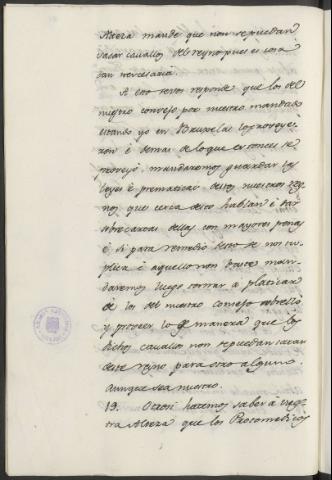 Alteza mande que non se puedan
sacar cavallos del reyno pues es cosa
tan necesaria.
A esto vos responde que los del
nuestro consejo por nuestro mandado
estando yo en Bruxelas lo proveye
ron é demas de lo que entonces se
proveyó mandaremos guardar las
leyes é prematicas destos nuestros rey
nos, que cerca desto hablan é dar
sobrecartas dellas con mayores penas
é si para remedio desto se nos su
plica é aquello non baste man
daremos luego tornar a platicar
á los del nuestro consejo sobrello
y proveer de manera que los
dichos cavallos non se puedan sacar
deste reyno para otro alguno
aunque sea nuestro.
19. Otrosi hacemos saber á vues
tra Alteza que los Protomedicos